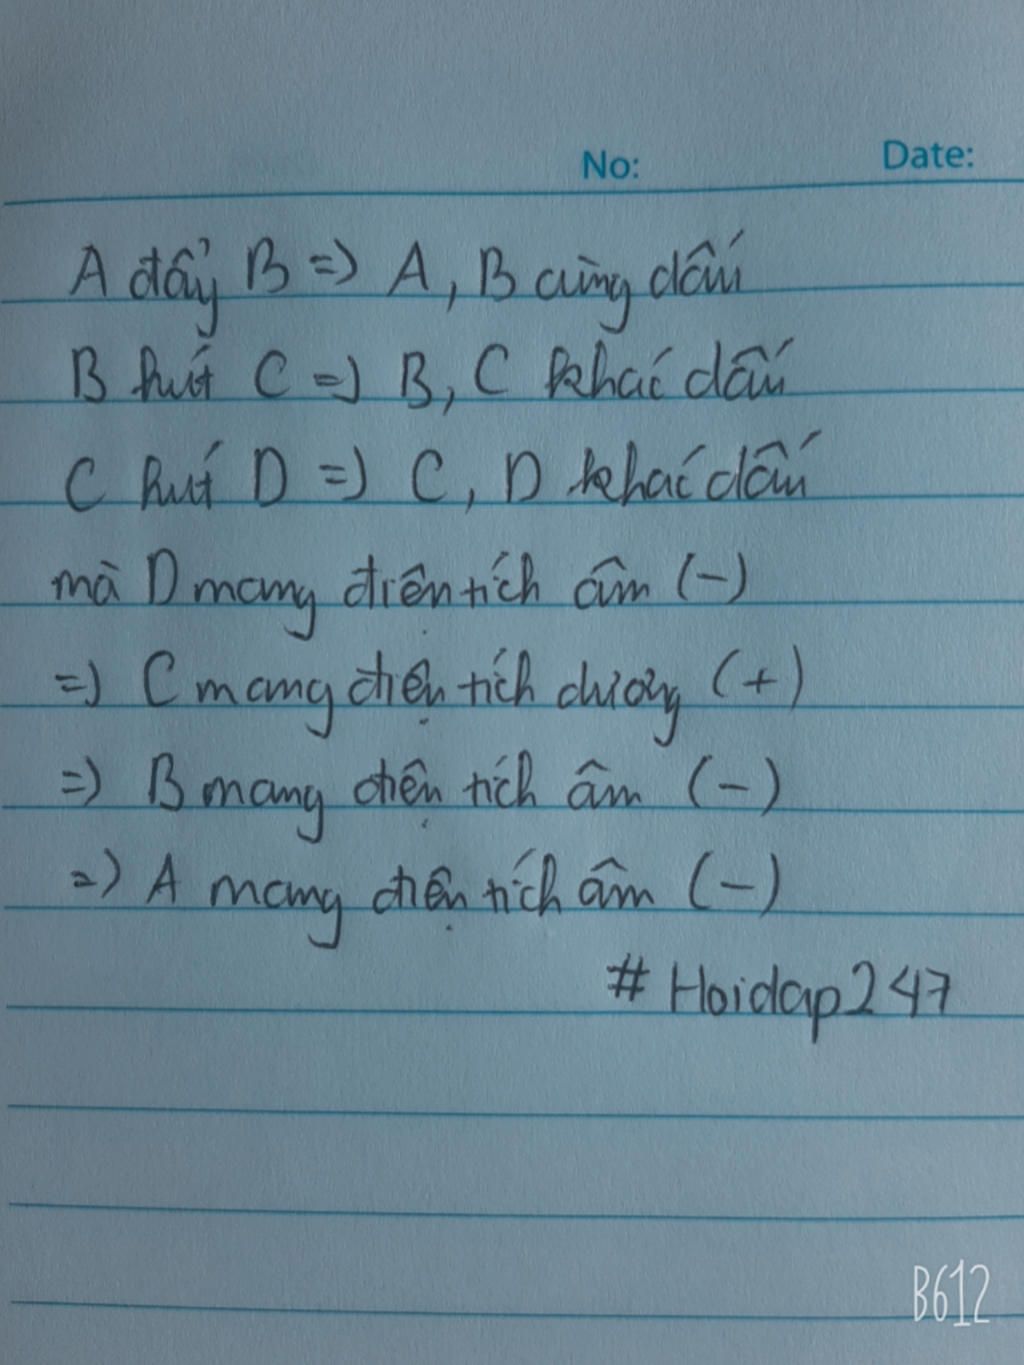 No: Date:
A đẩy B => A, B cùng dấu
B hút C => B, C khác dấu
C hút D => C, D khác dấu
mà D mang điện tích âm (-)
=> C mang điện tích dương (+)
=> B mang điện tích âm (-)
=> A mang điện tích âm (-)
# Hoidap247
B612